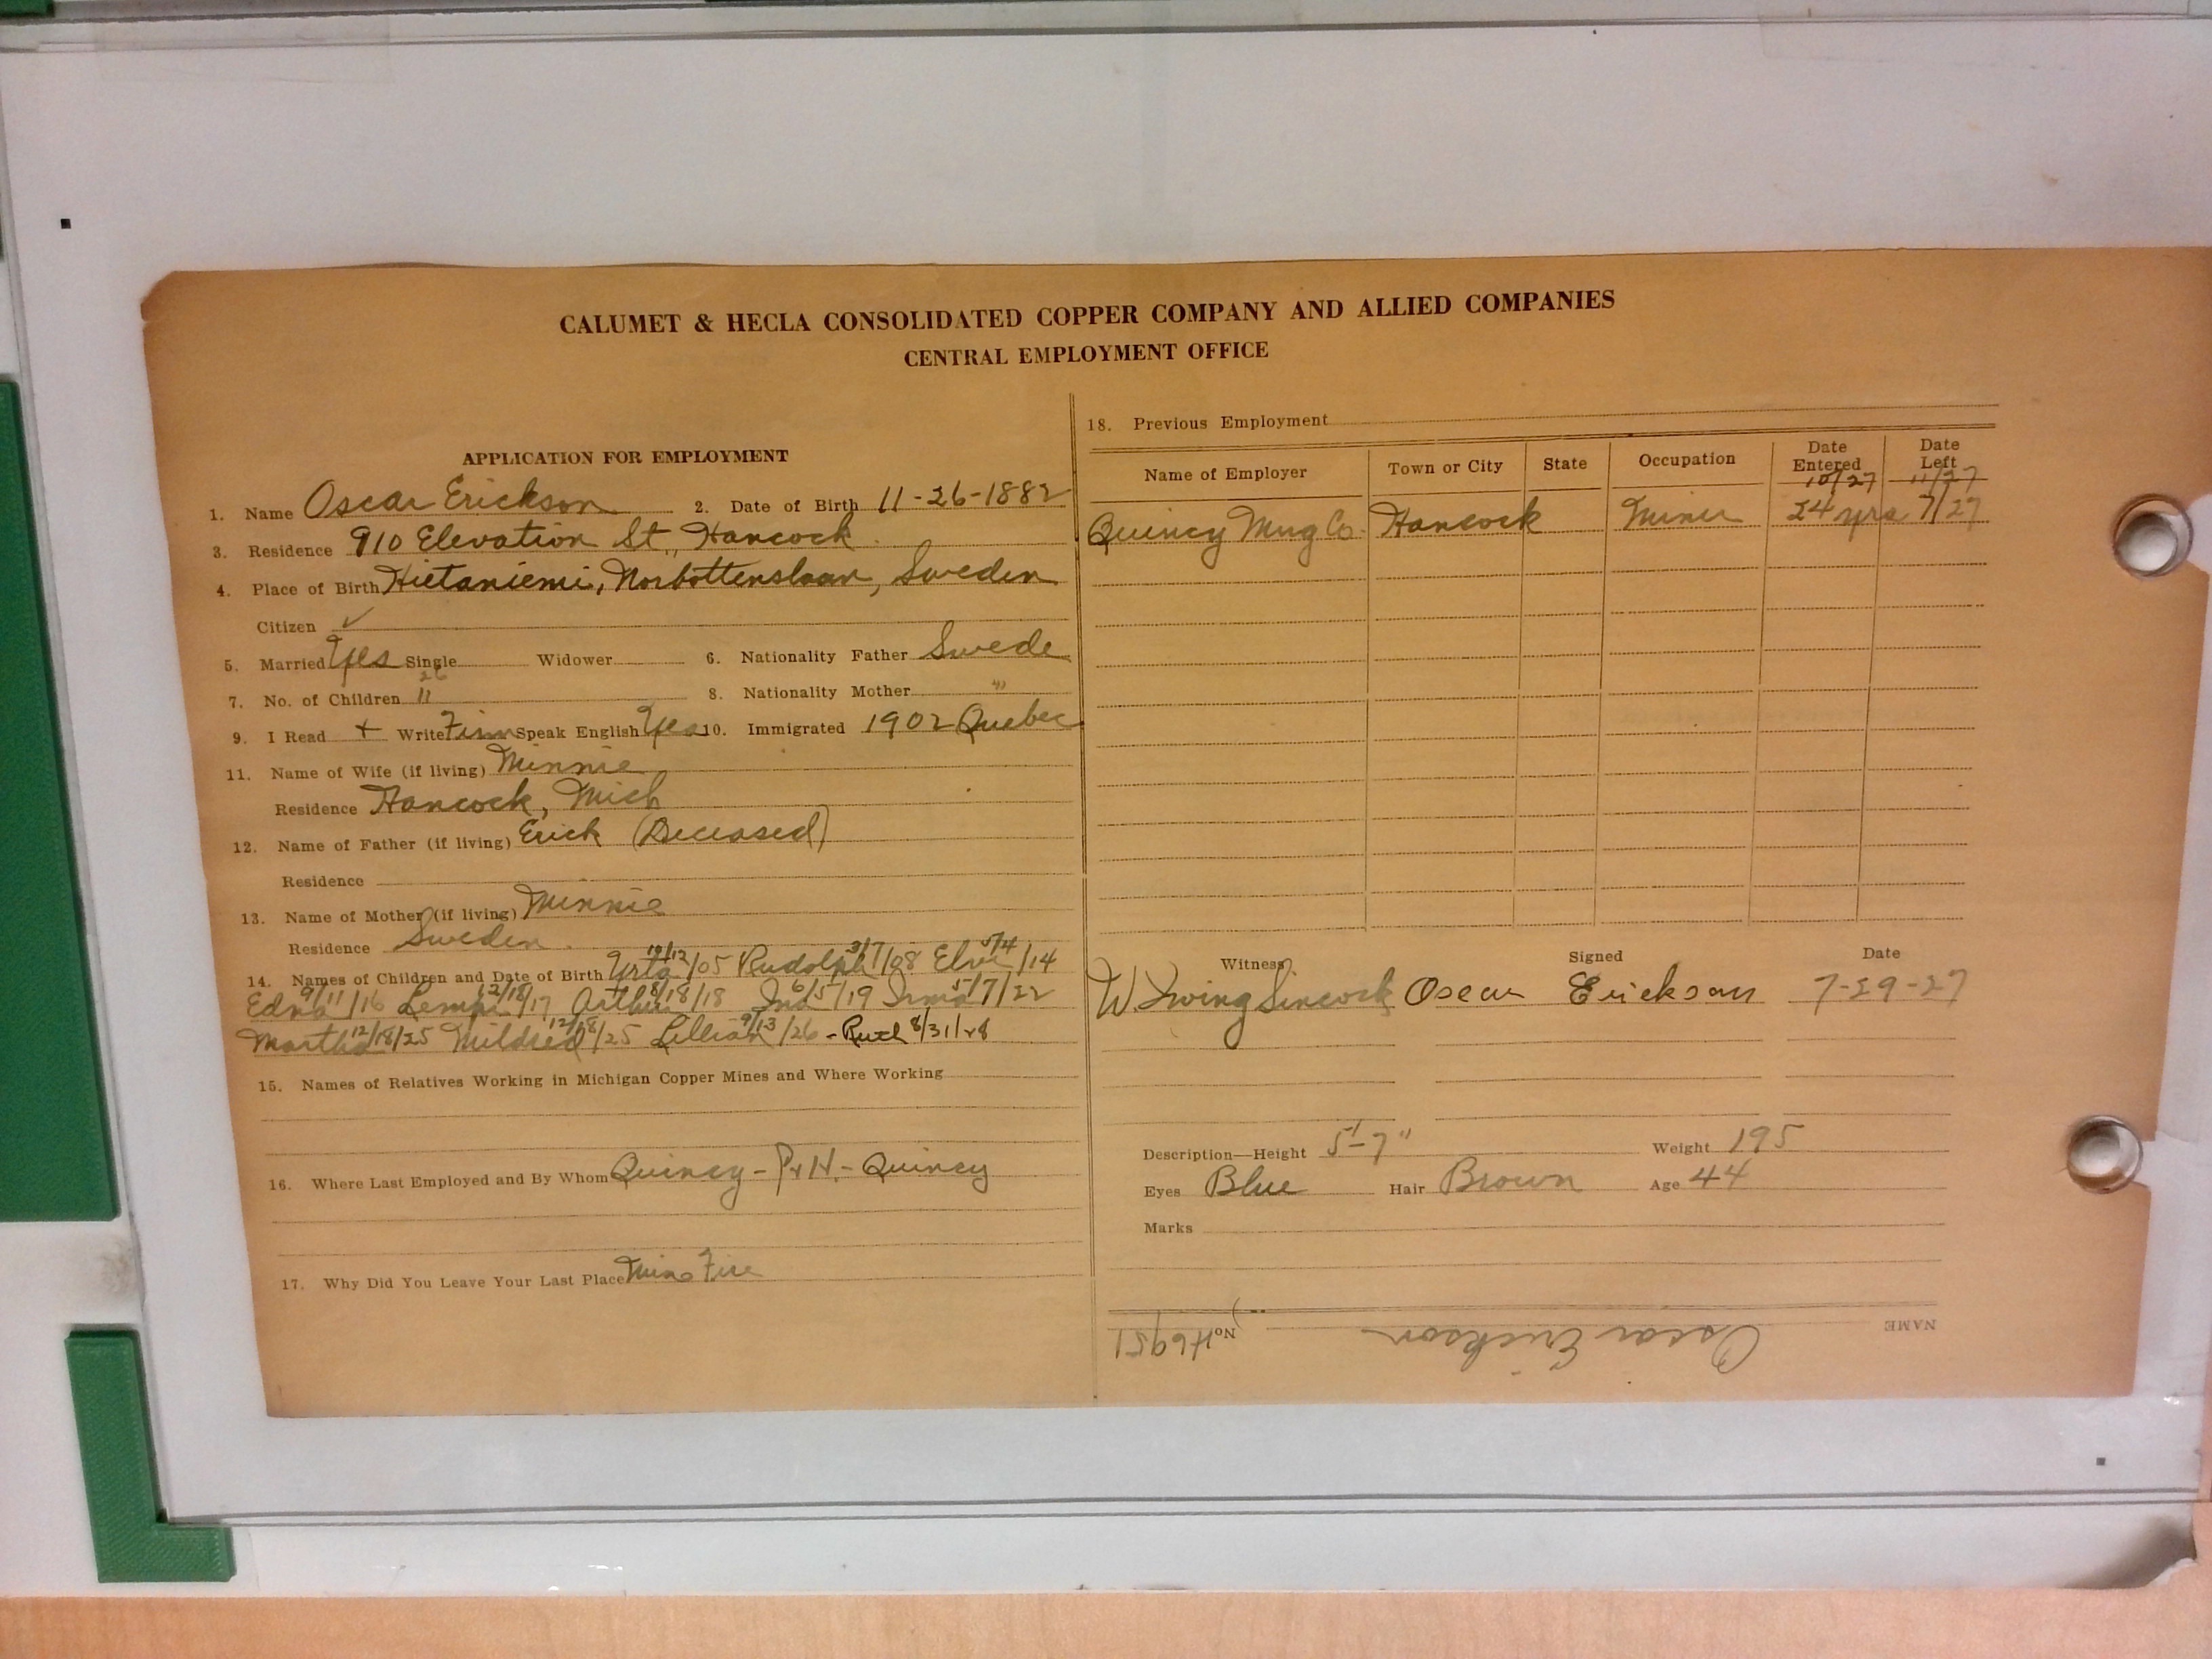 CALUMET & HECLA CONSOLIDATED COPPER COMPANY AND ALLIED COMPANIES
CENTRAL EMPLOYMENT OFFICE
APPLICATION FOR EMPLOYMENT
1. Name Oscar Erickson 2. Date of Birth 11-26-1882
3. Residence 910 Elevation St., Hancock
4. Place of Birth Hietaniemi, Norbottenslaan, Sweden
Citizen ✓
5. Married Yes Single Widower 6. Nationality Father Swede
7. No. of Children 11 8. Nationality Mother "
9. I Read + Write Finn Speak English Yes 10. Immigrated 1902 Quebec
11. Name of Wife (if living) Minnie
Residence Hancock, Mich
12. Name of Father (if living) Erick (Deceased)
Residence
13. Name of Mother (if living) Minnie
Residence Sweden
14. Names of Children and Date of Birth 10/12/05 Rudolph 3/7/08 5/4/14
Edna 9/11/16 Lempi 12/18/17 Arthur 8/18/18 6/5/19 Irma 5/7/22
Martha 12/18/25 Mildred 12/18/25 Lillian 9/13/26 - Ruth 8/31/28
15. Names of Relatives Working in Michigan Copper Mines and Where Working
16. Where Last Employed and By Whom Quincy - - Quincy
17. Why Did You Leave Your Last Place Mine Fire
18. Previous Employment
Name of Employer Town or City State Occupation Date Entered Date Left
10/27 11/27
Quincy Mng Co. Hancock Miner 24 yrs 7/27
Witness Signed Date
W. Irving Sincock Oscar Erickson 7-29-27
Description—Height 5'-7" Weight 195
Eyes Blue Hair Brown Age 44
Marks
NAME Oscar Erickson No. H6951